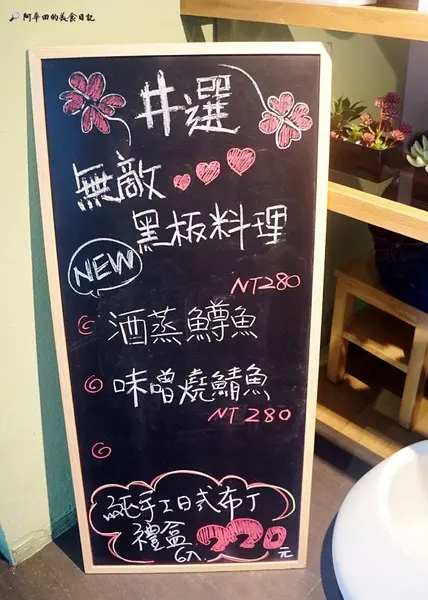 阿華田的美食日記
井選
無敵
黑板料理
NEW
NT280
酒蒸鱒魚
味噌燒鯖魚
NT 280
純手工日式布丁
禮盒 6入 220元